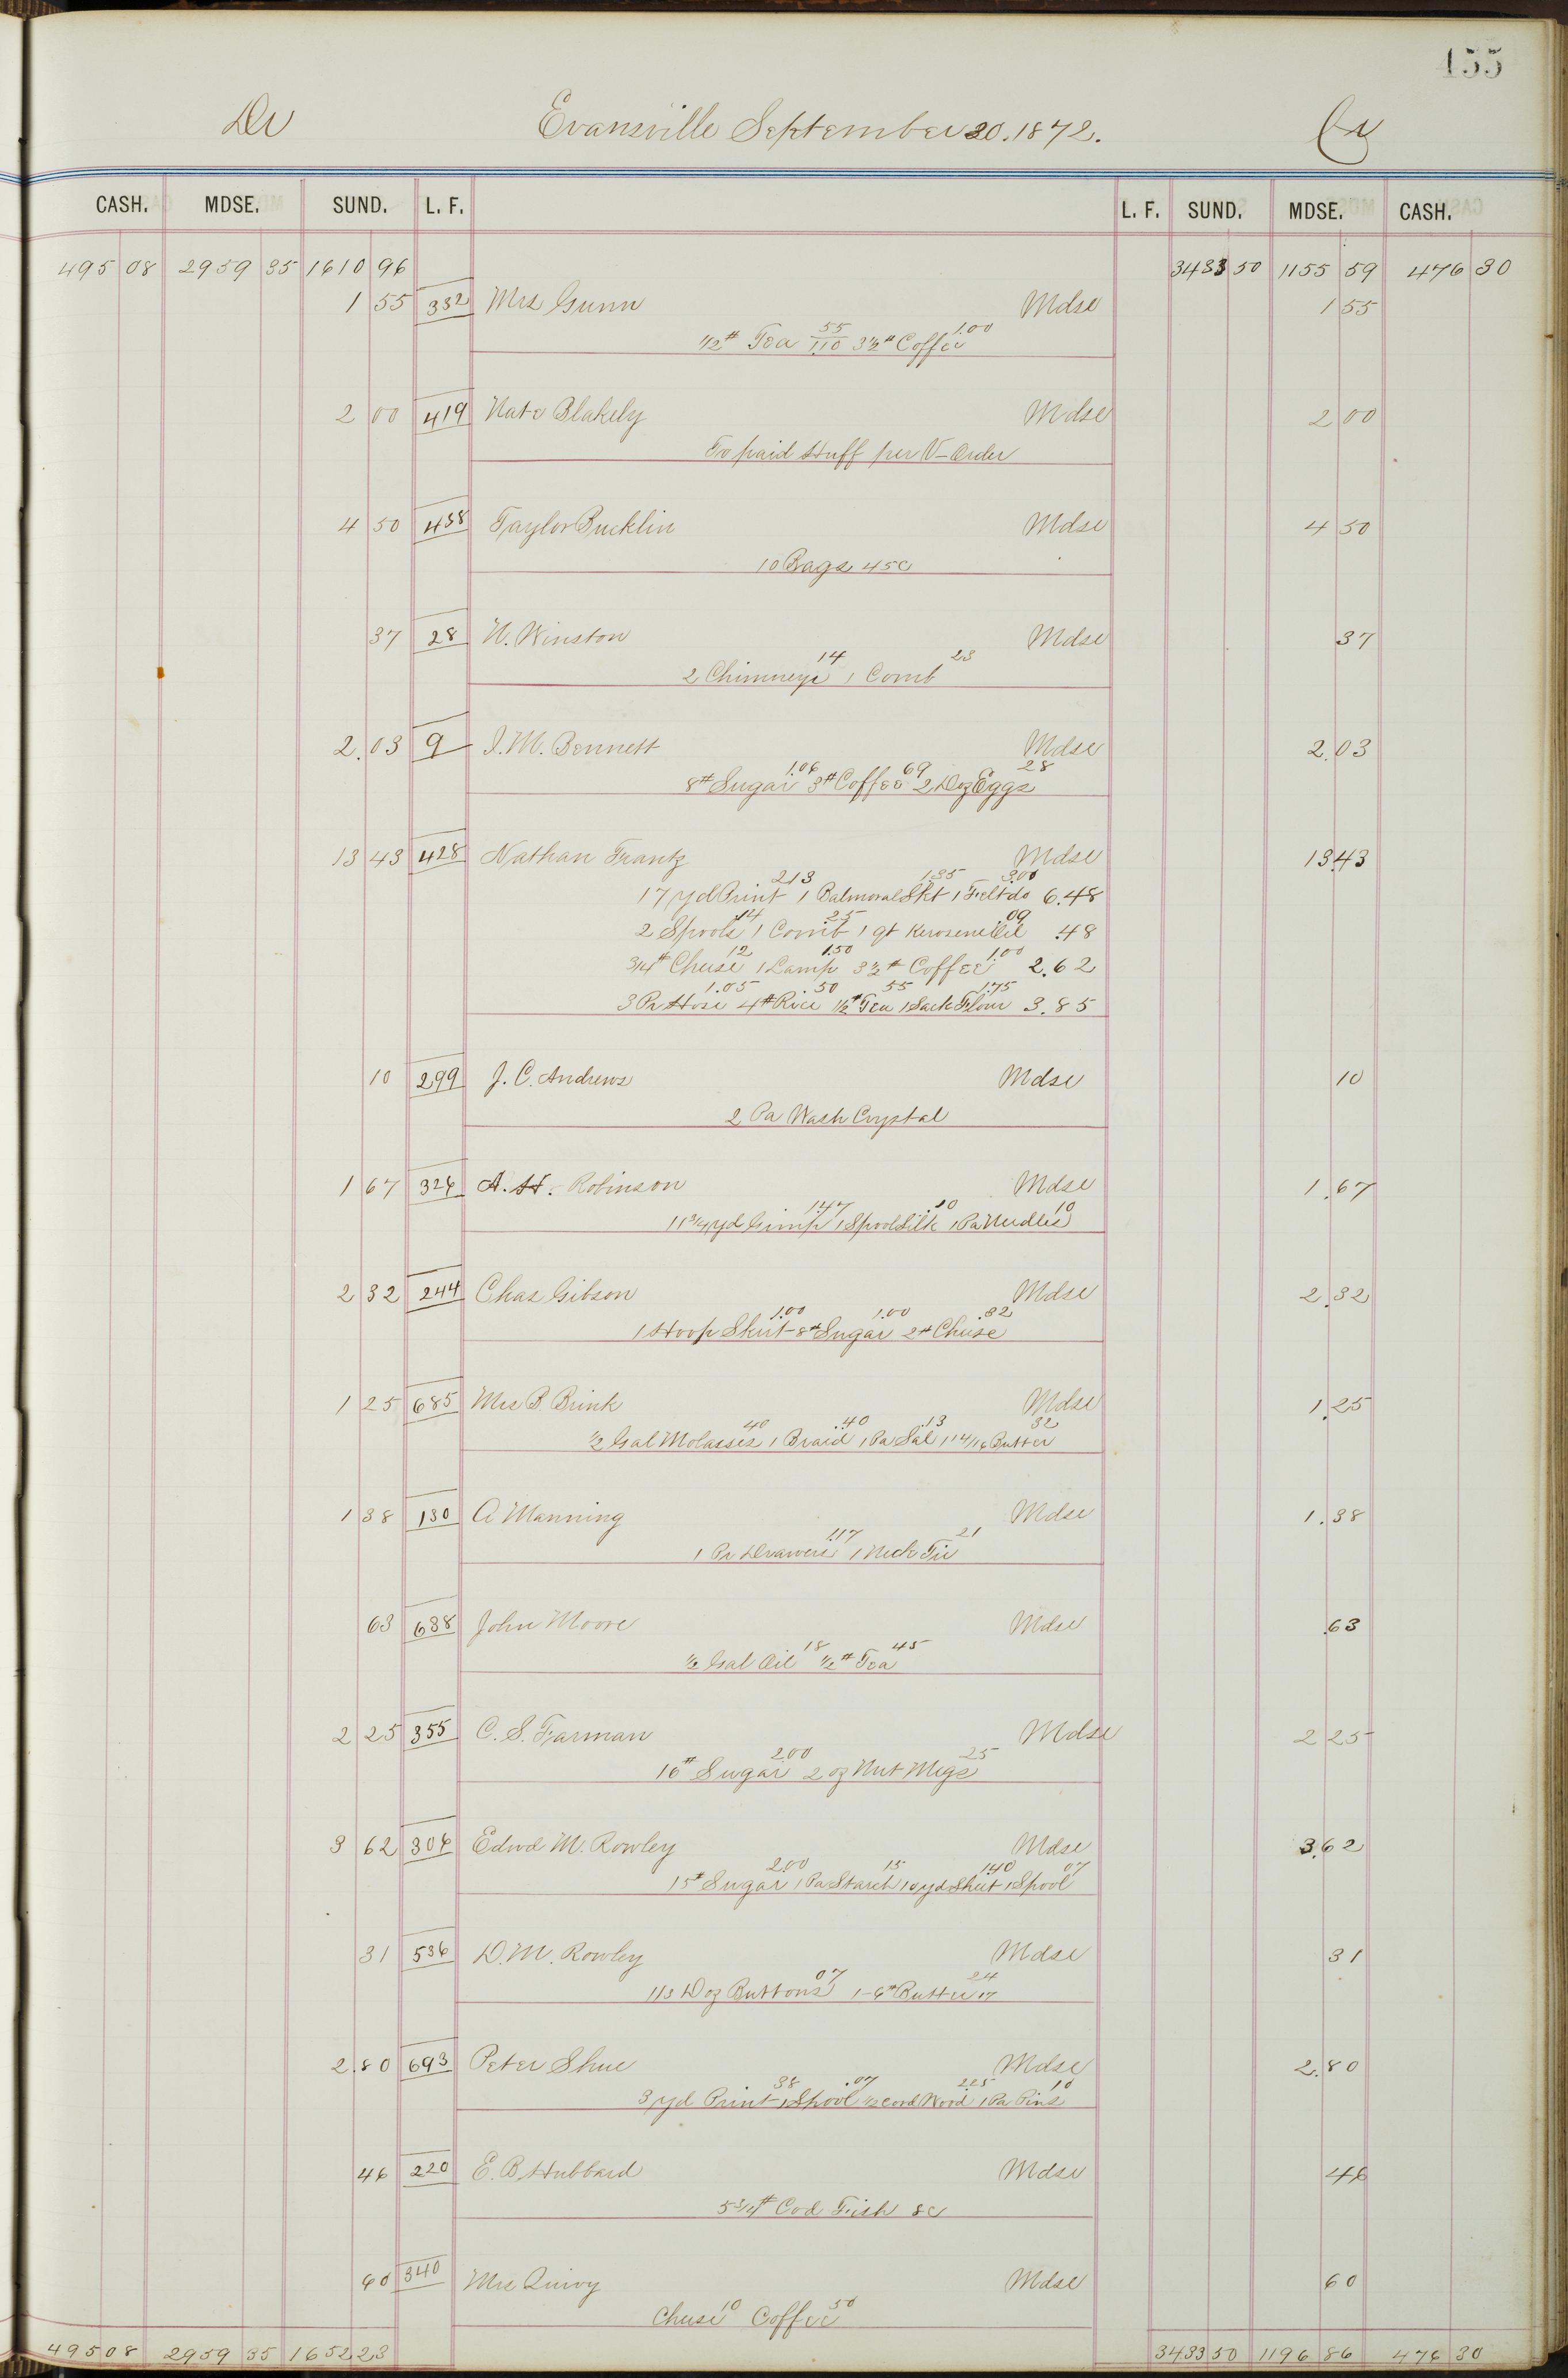 155
Dr Evansville September 20. 1872. Cr
CASH. MDSE. SUND. L. F. L. F. SUND. MDSE. CASH.
495 08 2959 35 1610 96 3433 50 1155 59 476 30
1 55 332 Mrs Gunn Mdse 1 55
55 1.00
1/2# Tea 1.10 3 1/2# Coffee
2 00 419 Nate Blakely Mdse 2 00
To paid Huff per V-Order
4 50 438 Taylor Bucklin Mdse 4 50
10 Bags 45c
37 28 N. Winston Mdse 37
14 23
2 Chimneys 1 Comb
2.03 9 I. M. Bennett Mdse 2.03
1.06 69 28
8# Sugar 3# Coffee 2 Doz Eggs
13 43 428 Nathan Frantz Mdse 13.43
2 13 1.35 3.00
17 yd Print 1 Balmoral Skt 1 Felt do 6.48
14 25 09
2 Spools 1 Comb 1 qt Kerosene Oil .48
12 1.50 1.00
3/4# Cheese 1 Lamp 3 1/2# Coffee 2.62
1.05 .50 55 1.75
3 Pr Hose 4# Rice 1/2# Tea 1 Sack Flour 3.85
10 299 J. C. Andrews Mdse 10
2 Pa Wash Crystal
1 67 326 A. H. Robinson Mdse 1.67
1.47 .10 10
11 3/4 yd Gimp 1 Spool Silk 1 Pa Needles
2 32 244 Chas Gibson Mdse 2.32
1.00 1.00 .32
1 Hoop Skirt 8# Sugar 2# Cheese
1 25 685 Mrs B. Brink Mdse 1.25
40 .40 .13 32
1/2 Gal Molasses 1 Braid 1 Pa Sal 1 14/16 Butter
1 38 130 A Manning Mdse 1.38
1.17 21
1 Pr Drawers 1 Neck Tie
63 638 John Moore Mdse .63
18 45
1/2 Gal Oil 1/2# Tea
2 25 355 C. S. Farman Mdse 2 25
2.00 25
16# Sugar 2 oz Nut Megs
3 62 306 Edwd M. Rowley Mdse 3.62
2.00 15 1.40 07
15# Sugar 1 Pa Starch 10 yd Sheet 1 Spool
31 536 D. M. Rowley Mdse 31
07 24
1/3 Doz Buttons 1-6# Butter 17
2.80 693 Peter Shue Mdse 2.80
38 .07 2.25 10
3 yd Print 1 Spool 1/2 Cord Wood 1 Pa Pins
46 220 E. B. Hubbard Mdse 46
5 3/4# Cod Fish 8c
60 340 Mrs Quivy Mdse 60
10 50
Cheese Coffee
495 08 2959 35 1652 23 3433 50 1196 86 476 30